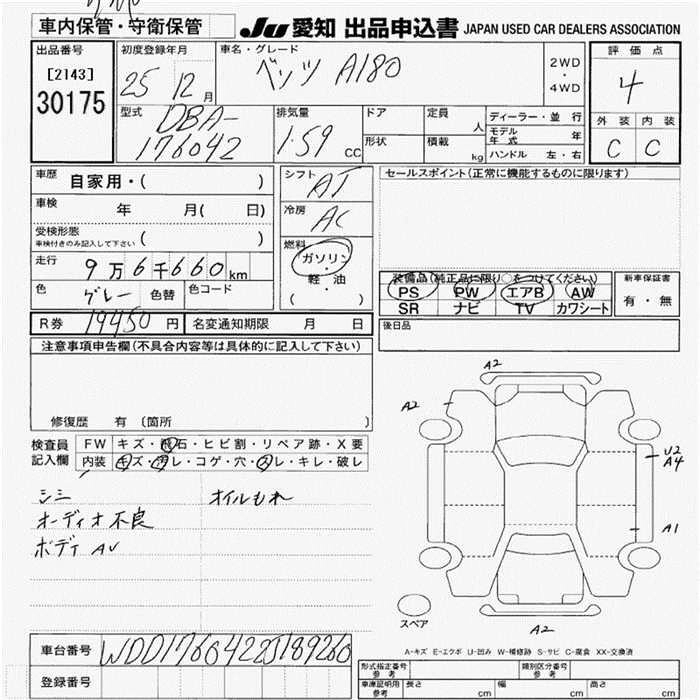 車内保管・守衛保管 JU 愛知 出品申込書 JAPAN USED CAR DEALERS ASSOCIATION
出品番号
[2143]
30175
初度登録年月
25 12月
車名・グレード
ベンツ A180
2WD
・
4WD
評価点
4
外装 内装
C C
型式
DBA-
176042
排気量
1.59 cc
ドア
形状
定員 人
積載 kg
ディーラー・並行
モデル年式 年
ハンドル 左・右
車歴 自家用・( )
車検 年 月( 日)
受検形態
車検付きのみ記入して下さい ( )
走行 9万6千660km
色 グレー 色替 色コード
R券 19450円 名変通知期限 月 日
シフト AT
冷房 AC
燃料
ガソリン
・
軽・油
( )
セールスポイント(正常に機能するものに限ります)
装備品(純正品に限り○をつけてください)
PS PW エアB AW
SR ナビ TV カワシート
新車保証書
有・無
後日品
注意事項申告欄(不具合内容等は具体的に記入して下さい)
修復歴 有 〔箇所 〕
検査員記入欄
FW キズ・飛石・ヒビ割・リペア跡・X要
内装 キズ・汚レ・コゲ・穴・スレ・キレ・破レ
シミ オイルもれ
オーディオ不良
ボディ AU
A2
A2
U2
A4
A1
A2
スペア
A-キズ E-エクボ U-凹み W-補修跡 S-サビ C-腐食 XX-交換済
車台番号 WDD1760422J189260
登録番号
形式指定番号 参考
類別区分番号 参考
車庫証明用 参考 長さ cm 幅 cm 高さ cm